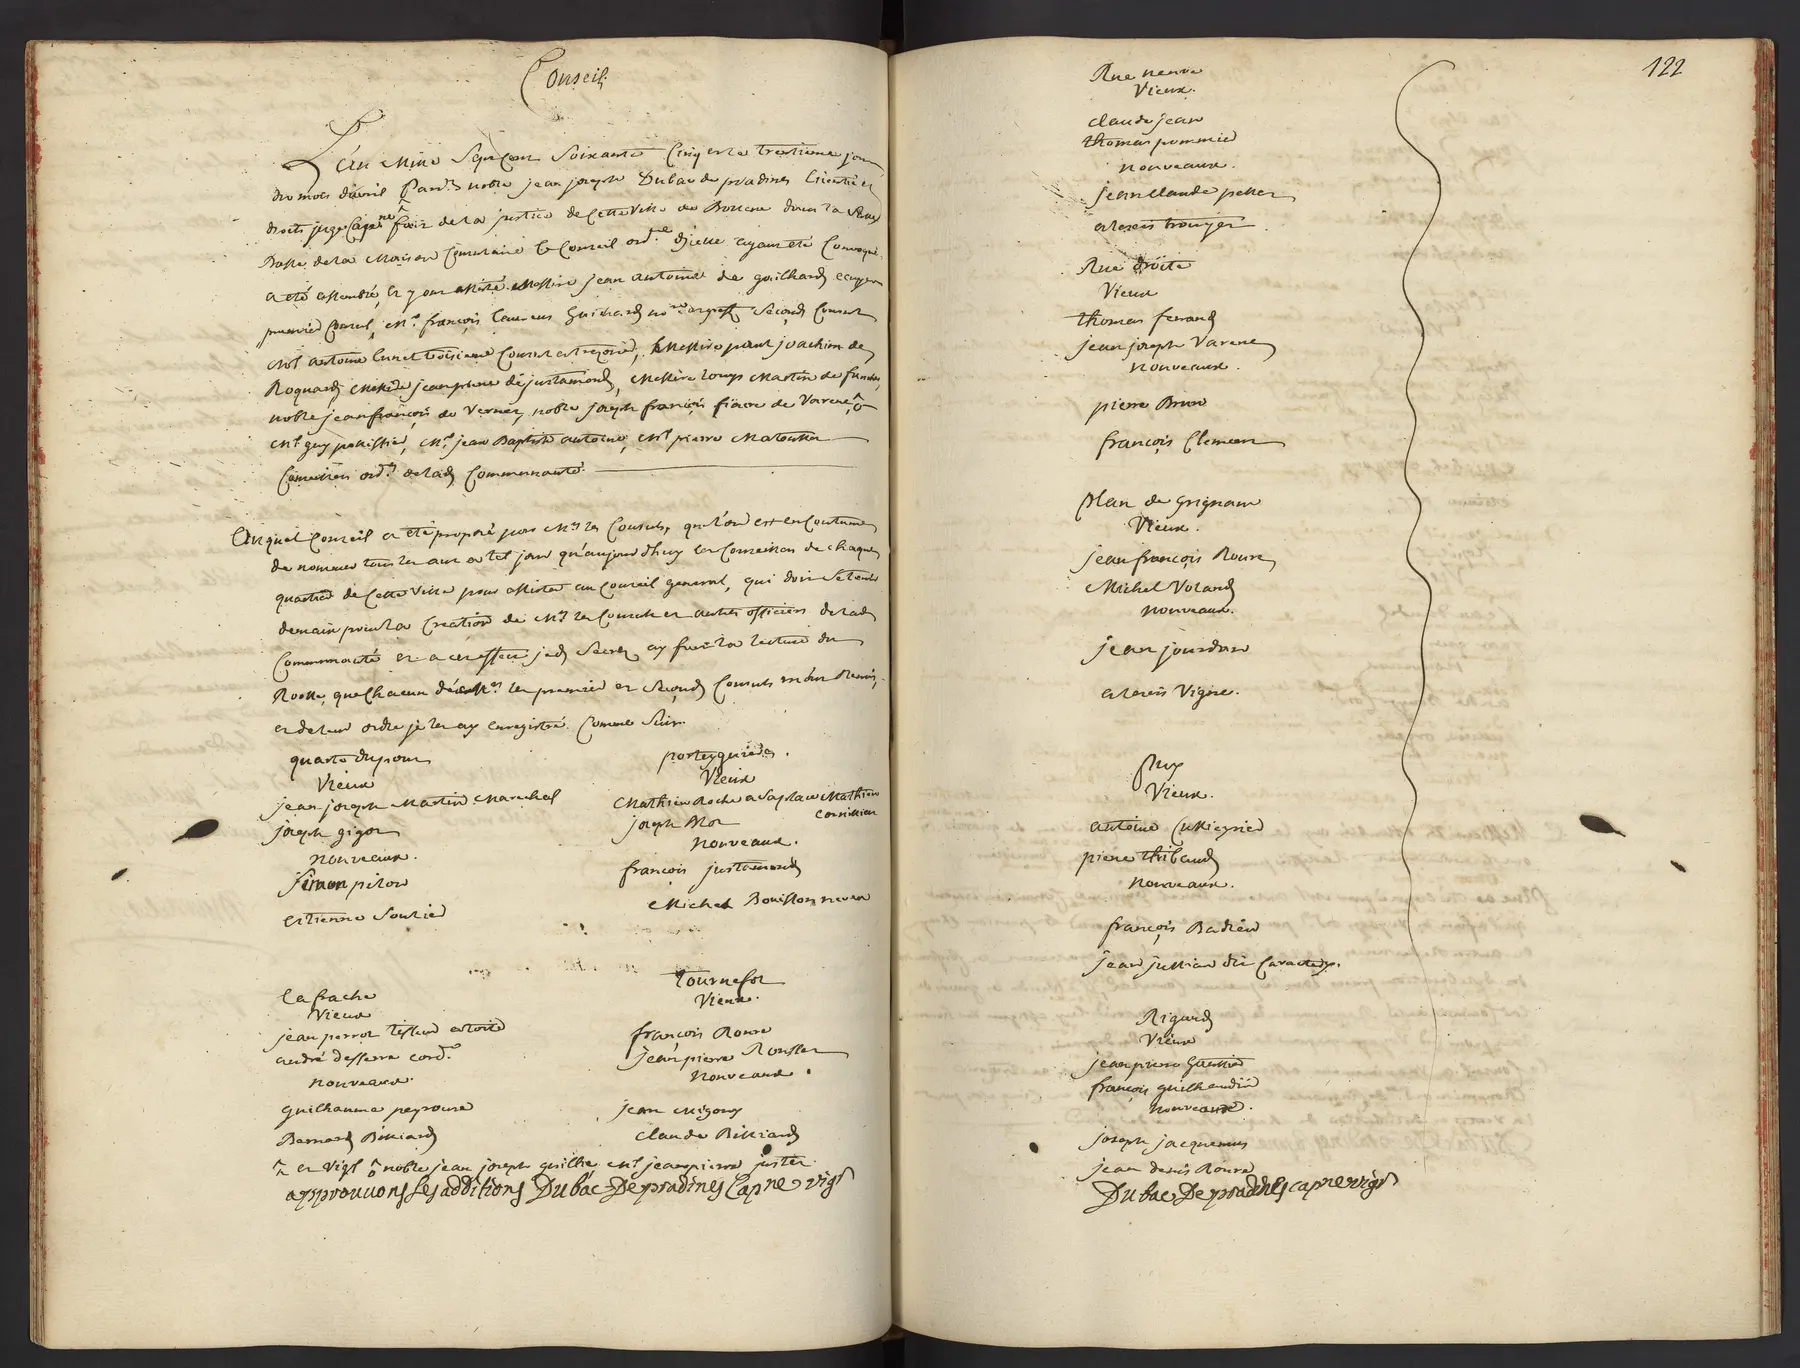 Conseil
L'an mille sept cent soixante cinq et le trentieme jour
du mois d'avril Pard.t noble jean joseph Dubac de pradines licentié ez
droits juge Capne ^ vigr de la justice de cette ville de Bollene dans la salle
Basse de la Maison Consulaire le Conseil ord.re d'jcelle ayant été Convoqué
a eté assemblé, et y ont assisté Messire jean antoine de guilhard ecuyer
premier Consul, Mr. françois laurens Guichard no.re second Consul
Mr antoine lunel troisieme Consul et tresorier, Messire paul joachim de
Roquard, Messire jean pierre de justamond, Messire louys Martin de
noble jean françois de Vernet, noble joseph françois fiacre de Varene, ^o
Mr guy pellissier, Mr jean Baptiste antoine, Mr pierre Matoullier
Conseillers ord.res de lad. Communauté.
Auquel Conseil a été proposé par Mrs les Consuls, que l'on est en Coutume
de nommer tous les ans a tel jour qu'aujourd'huy les Conseillers de chaque
quartier de Cette ville pour assister au Conseil general, qui doit se tenir
demain pour la Creation de Mrs les Consuls et autres officiers de lad.
Communauté et a cet effet je d. Secret.re ay fait la lecture du
Rolle, que Chacun de Mrs les premier et second Consuls m'ont Remis,
et de leur ordre je les ay enregistré Comme suit.
quarto dupont
Vieux
jean joseph Martin Marechal
joseph gigon
nouveaux.
simon pilon
estienne soulier
porteyguieres.
Vieux
Mathieu Roche a sa place Mathieu
Cornillian
joseph Mor
nouveaux.
francois justamond
Michel Bouisson neveu
la frache
Vieux
jean perrot tisseur a toile
andré desserre cord.r
nouveaux.
guilhaume peyroure
Bernard Billiard
tournefol
Vieux.
francois Roure
jean pierre Roussen
Nouveaux.
jean Migony
Claude Billiard
^ et vigr ^o noble jean joseph guillie Mr jean pierre juster
approuvons les additions Dubac De pradines Capne vigr
122
Rue neuve
Vieux.
claude jean
thomas pommier
nouveaux.
jean claude pellen
alexis trouyer
Rue droite
Vieux
thomas ferrand
jean joseph Varene
nouveaux.
pierre Brun
françois Clemen
Plan de grignan
Vieux.
jean françois Roure
Michel Voland
nouveaux.
jean jourdan
alexis Vigne.
Puy
Vieux.
antoine Cullieyrier
piere thibaud
nouveaux.
françois Badieu
jean jullian dit
Rigaud
Vieux
jean pierre Gautier
françois guilhaudin
nouveaux.
joseph jacquemus
jean denis Roure
Dubac De pradines capne vigr